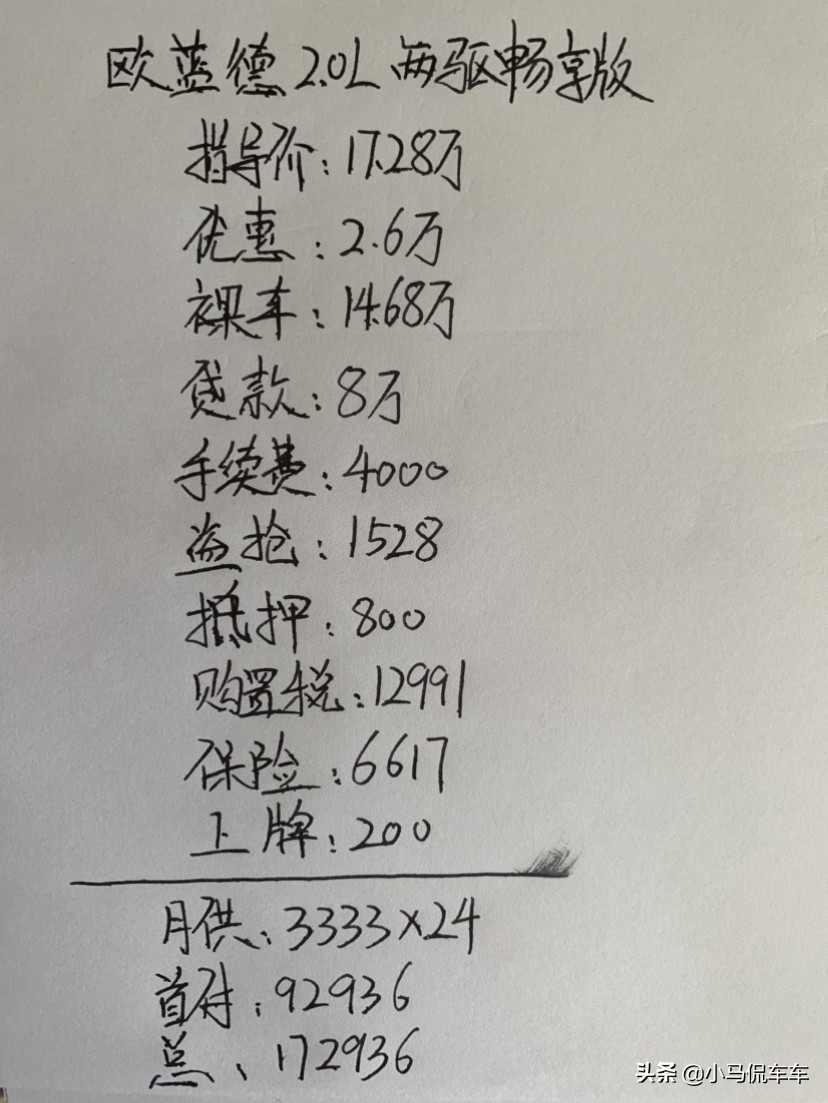 欧蓝德2.0L 两驱畅享版
指导价:17.28万
优惠:2.6万
裸车:14.68万
贷款:8万
手续费:4000
盗抢:1528
抵押:800
购置税:12991
保险:6617
上牌:200
月供:3333×24
首付:92936
总、172936
头条 @小马侃车车